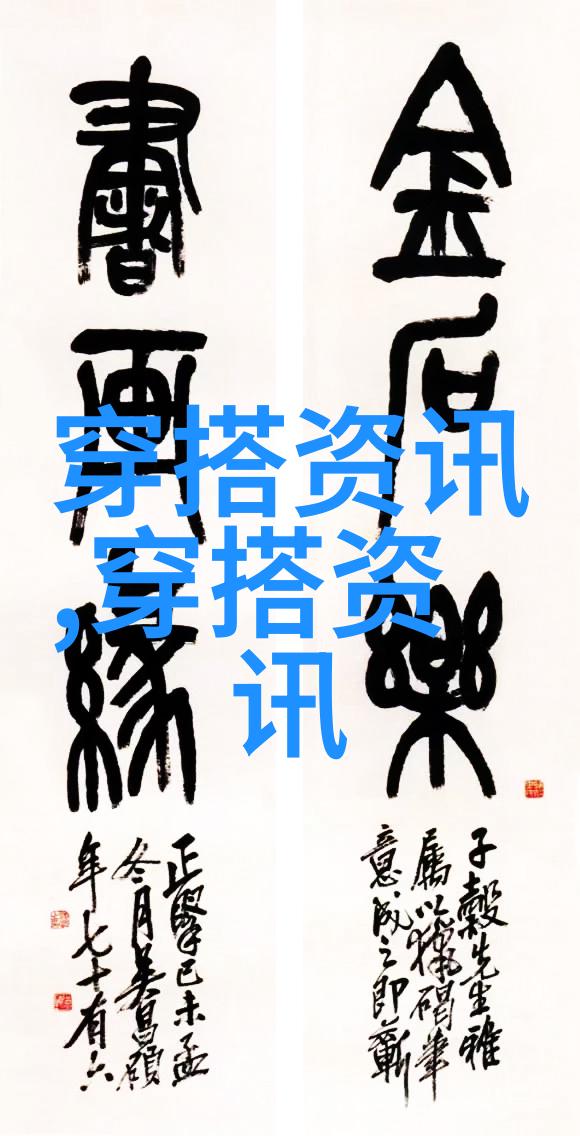 金石樂
子穀先生雅
屬以獵碣筆
意成之即蘄
書畫緣
正己未孟
冬月吳昌碩
年七十有六
穿搭资讯
,穿搭资
讯